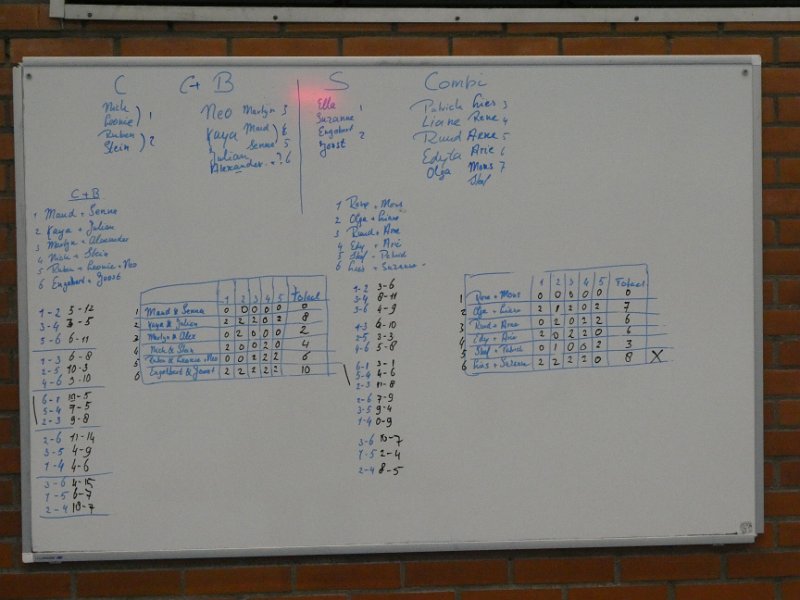 C C+B S Combi
Nick
Leonie 1
Ruben
Stein 2
Neo Martijn 3
Kaya Maud
Senne 5
Julian
Alexander ? 6
Ella 1
Suzanne
Engelbert 2
Joost
Patrick Lies 3
Liane Rene 4
Ruud Arne 5
Edyta Arie 6
Olga Mons 7
Stef
C+B
1 Maud + Senne
2 Kaya + Julian
3 Martijn + Alexander
4 Nick + Stein
5 Ruben + Leonie + Neo
6 Engelbert + Joost
1-2 5-12
3-4 3-5
5-6 6-11
1-3 6-8
2-5 10-3
4-6 9-10
6-1 10-5
5-4 7-5
2-3 9-8
2-6 11-14
3-5 4-9
1-4 4-6
3-6 4-15
1-5 6-7
2-4 10-7
1 2 3 4 5 Totaal
1 Maud & Senna 0 0 0 0 0 0
2 Kaya & Julian 2 2 2 0 2 8
3 Martijn & Alex 0 2 0 0 0 2
4 Nick & Stein 2 0 0 2 0 4
5 Ruben & Leonie + Neo 0 0 2 2 2 6
6 Engelbert & Joost 2 2 2 2 2 10
1 Rene + Mons
2 Olga + Liane
3 Ruud + Arne
4 Edy + Arie
5 Stef + Patrick
6 Lies + Suzanne
1-2 3-6
3-4 8-11
5-6 4-9
1-3 6-10
2-5 3-3
4-6 5-8
6-1 3-1
5-4 4-6
2-3 11-8
2-6 7-9
3-5 9-4
1-4 0-9
3-6 10-7
1-5 2-4
2-4 8-5
1 2 3 4 5 Totaal
1 Rene + Mons 0 0 0 0 0 0
2 Olga + Liane 2 1 2 0 2 7
3 Ruud + Arne 0 2 0 2 2 6
4 Edy + Arie 2 0 2 2 0 6
5 Stef + Patrick 0 1 0 0 2 3
6 Lies + Suzanne 2 2 2 2 0 8 X